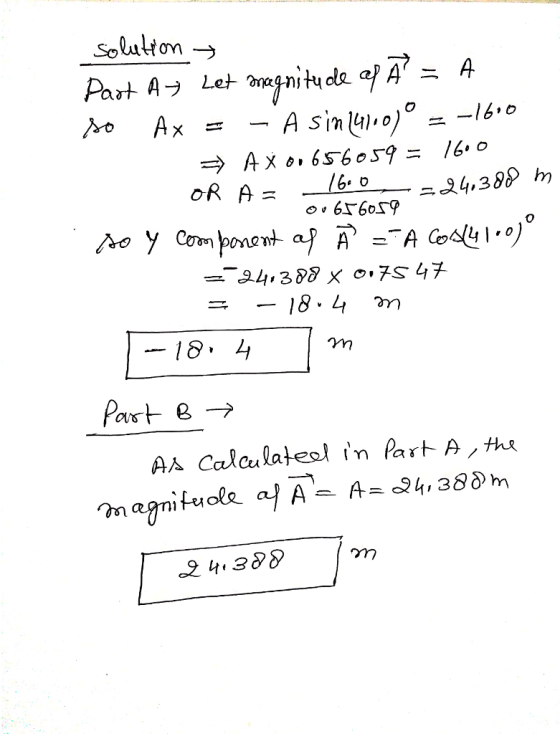 Solution →
Part A → Let magnitude of A⃗ = A
so Ax = - A sin(41.0)° = -16.0
⇒ A X 0.656059 = 16.0
OR A = 16.0 / 0.656059 = 24.388 m
so Y component of A⃗ = -A Cos(41.0)°
= -24.388 X 0.7547
= - 18.4 m
- 18. 4 m
Part B →
As Calculated in Part A, the
magnitude of A⃗ = A = 24.388m
24.388 m